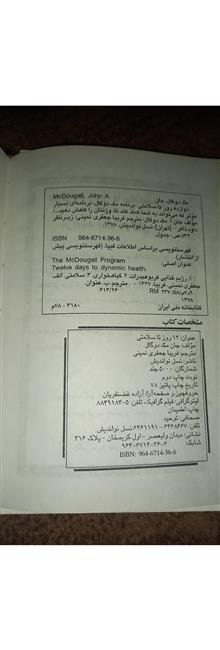 McDougall, John A.
مک دوگال، جان
دوازده روز تا سلامتی: برنامه مک دوگال، برنامه‌ای بسیار
مؤثر که می‌تواند به شما کمک کند تا وزنتان را کاهش دهید.../
مؤلف جان آ. مک دوگال؛ مترجم فریبا جعفری نمینی؛ زیرنظر
داود ذاکر. - [تهران]: نسل نواندیش، ۱۳۷۸.
ص. جدول.
ISBN 964-6714-36-6
فهرستنویسی براساس اطلاعات فیپا (فهرستنویسی پیش
از انتشار).
عنوان اصلی: The McDougall Program
Twelve days to dynamic health.
۱. رژیم غذایی کربوهیدرات. ۲. گیاهخواری ۳. سلامتی الف.
جعفری نمینی، فریبا، ۱۳۴۷ - ، مترجم. ب. عنوان
۶۱۳/۲۶ RM ۲۳۷/۵۸/
۱۳۷۸
کتابخانه ملی ایران ۳۱۸۰-۷۸م
مشخصات کتاب
عنوان: ۱۲ روز تا سلامتی
مؤلف: جان مک دوگال
مترجم: فریبا جعفری نمینی
ناشر: نسل نواندیش
شمارگان: ۵۰۰۰ جلد
نوبت چاپ: دوم
تاریخ چاپ: پائیز ۷۸
حروفچین و صفحه‌آرا: آزاده تلفنقریان
لیتوگرافی: فیلم گرافیک، تلفن: ۵-۸۸۴۹۱۸۴
چاپ: اطمینان
صحافی: توحید
تلفن: ۶۴۶۸۶۶۷-۶۴۶۱۱۹۱ نسل نواندیش
نشانی: میدان ولیعصر - اول کریمخان - پلاک ۳۱۶
شابک: ۶-۳۶-۶۷۱۴-۹۶۴
ISBN: 964-6714-36-6